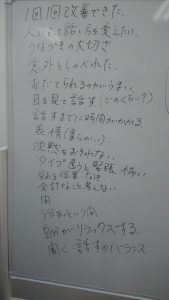 1回1回改善できた.
人によって話し方を変えたい.
うなづきの大切さ
意外としゃべれた.
おだてられるのがうまい.
目を見て話す(どのくらい?)
話すまでに時間がかかる
表情(柔らかい)
沈黙をおそれない.
タイプ違うと緊張 怖い.
余計なこと考えない
間.
自分がリラックスする.
聞く 話すのバランス